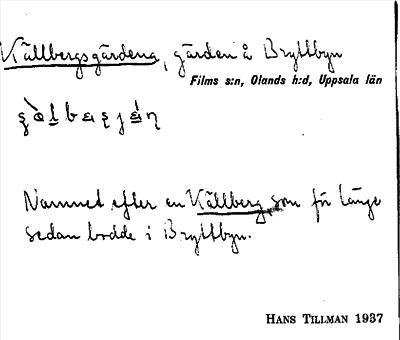 Källbergsgårdena, gårdar i Bryttbyn
Films s:n, Olands h:d, Uppsala län
Namnet efter en Källberg som för länge
sedan bodde i Bryttbyn.
HANS TILLMAN 1937